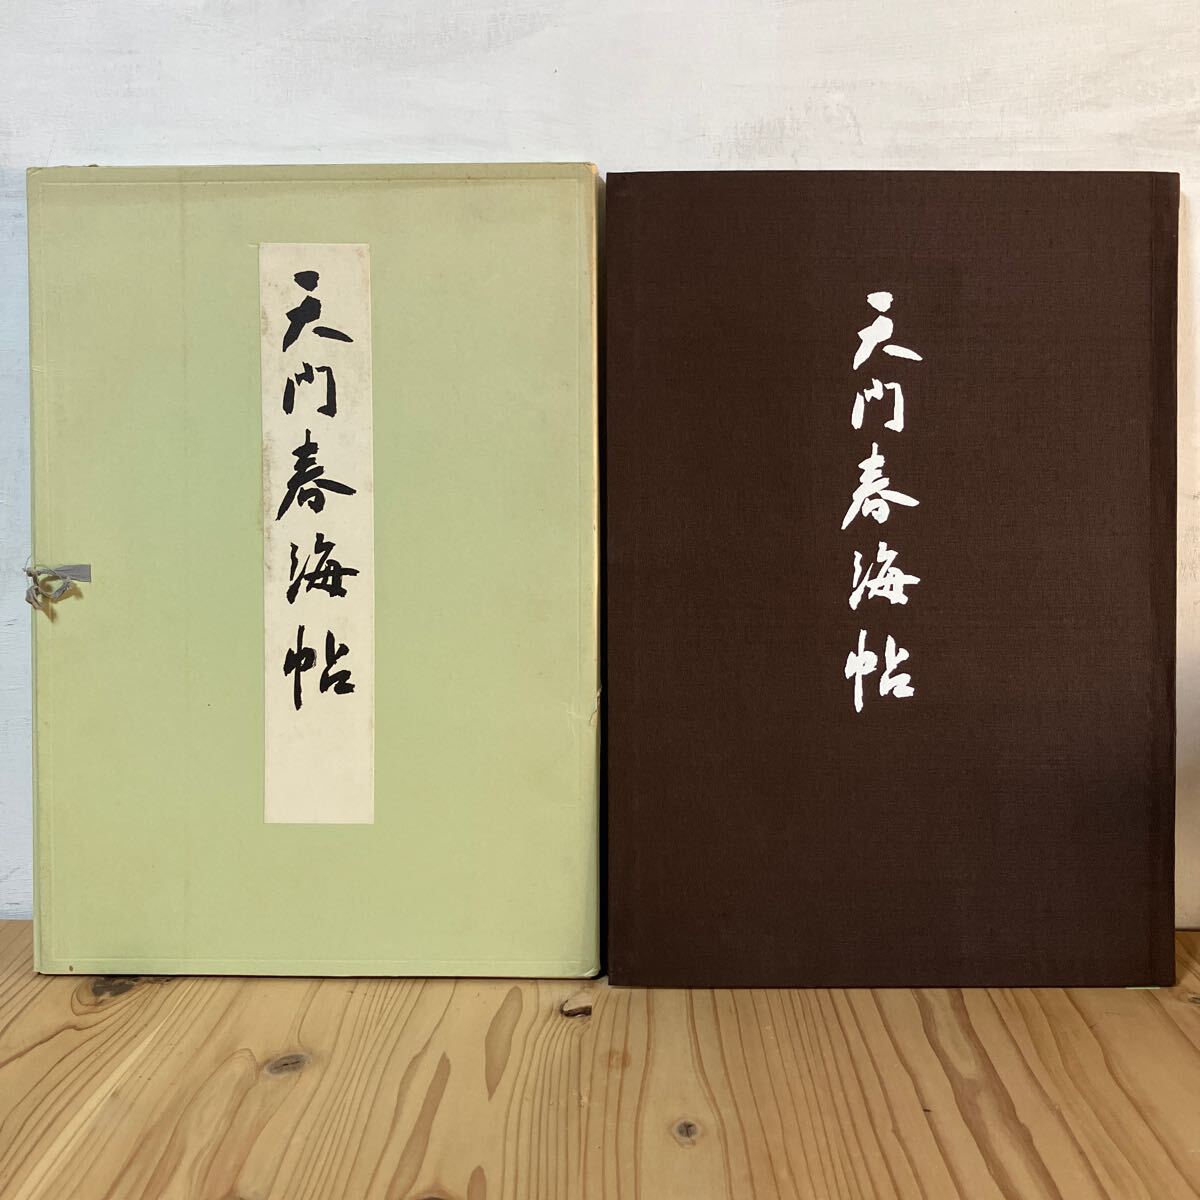 天門春海帖
天門春海帖